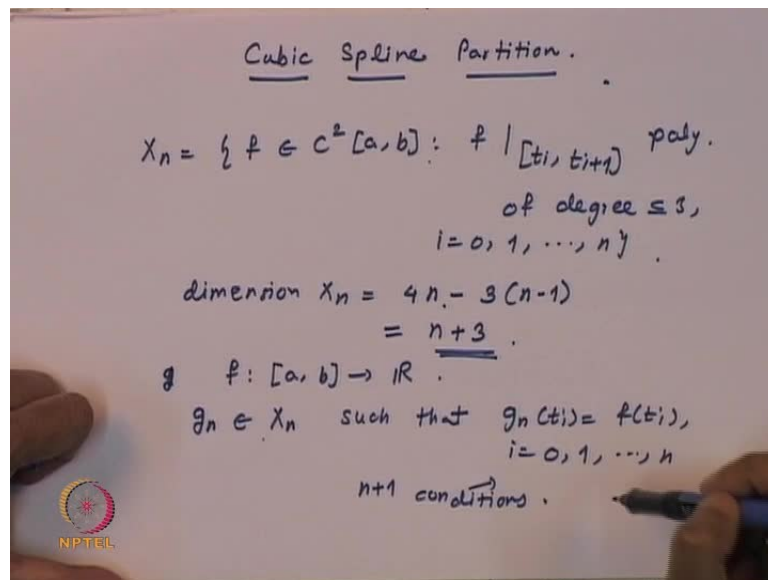 Cubic Spline Partition.
Xn = { f ∈ C² [a, b] : f | [ti, ti+1] poly.
of degree ≤ 3,
i = 0, 1, ..., n } .
dimension Xn = 4n - 3(n-1)
= n+3 .
g f : [a, b] → IR .
gn ∈ Xn such that gn(ti) = f(ti),
i = 0, 1, ..., n
n+1 conditions .
NPTEL